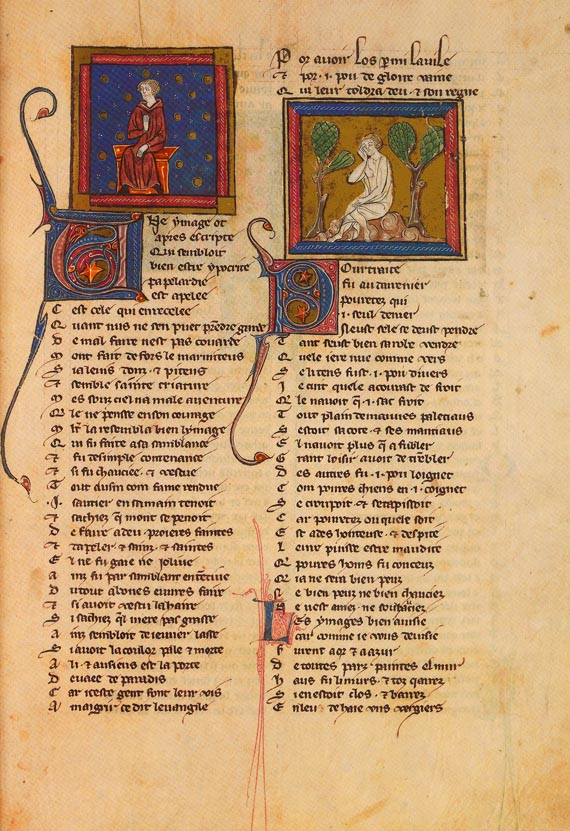 Vne ymage ot
apres escripte
Qui sembloit
bien estre ypocrite
papelardie
est apelee
C est cele qui en recelee
Q uant nus ne sen puet prendre garde
D e mal faire nest pas couarde
& ont fait defors le marmiteus
S ia le uis dom & piteus
& semble sainte criature
M es souz ciel na male auenture
Q le ne pense en son courage
M lt la resembla bien lymage
Q ui fu faite a sa samblance
& fu de simple contenance
& si fu chaucie & uestue
T out ausin com fame rendue
.I. sautier en sa main tenoit
& sachiez q mont se penoit
D e faire a deu proieres faintes
& dapeler & sainz & saintes
E l ne fu gaie ne joliue
A inz fu par samblant ententiue
D u tout a bones euures faire
& si auoit uestu la haire
S i sachiez q niere pas grasse
A inz sembloit de ieuner lasse
S i auoit la coulor pale & morte
A li & as siens est la porte
D euaee de paradis
C ar iceste gent font leur uis
A maigrir ce dit leuangile
P or auoir los parmi la uile
& por .i. pou de gloire uaine
Q ui leur toldra deu & son regne
Pourtraite
fu au darrenier
pouretez qui
.i. seul denier
N eust sele se deust pendre
T ant seust bien sa robe uendre
Q uele iere nue comme uers
S e li tens fust .i. pou diuers
I e cuit quele acorast de froit
Q le nauoit q .i. sac froit
T out plain de mauues paletiaus
S estoit sa cote & ses mantiaus
E l nauoit plus q afubler
G rant loisir auoit de trembler
D es autres fu .i. pou loignet
C om poures chiens en .i. coignet
S e cropoit & se tapissoit
C ar pourete ou quele soit
E st ades honteuse & despite
L eure puisse estre maudite
Q poures homs fu conceuz
Q ia ne sera bien peuz
N e bien peuz ne bien chauciez
N e nest amez ne souhaciez
L es ymages bien auisie
C ar comme ie uous deuisie
F urent a or & a azur
D e toutes parz paintes el mur
H aus fu li murs & toz quarrez
S i en estoit clos & barrez
E n lieu de haie uns uergiers